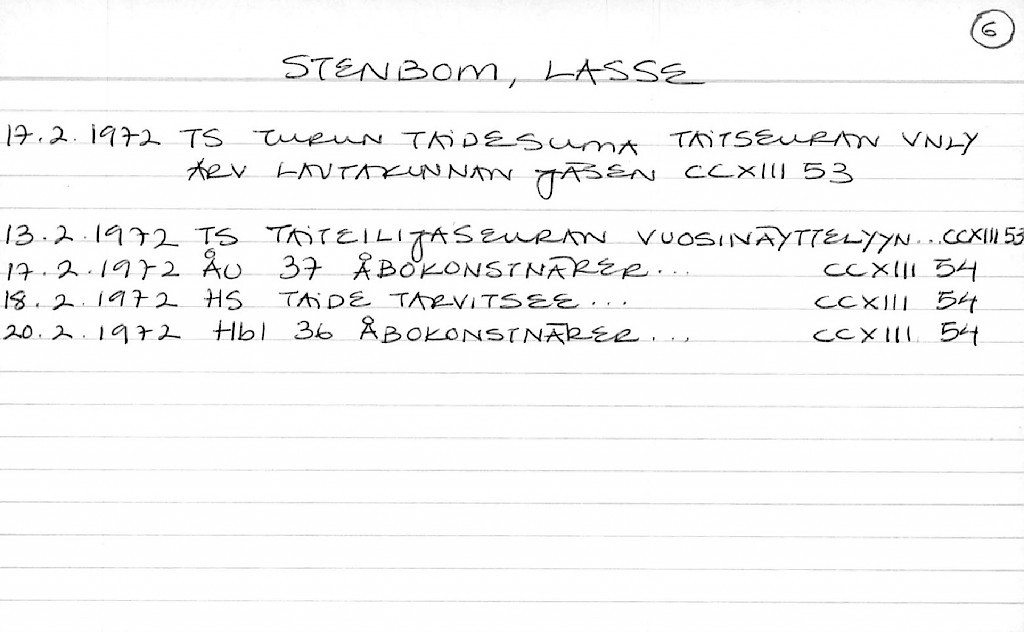 6
STENBOM, LASSE
17.2.1972 TS TURUN TAIDESUMA TAITSEURAN VNLY
ARV LAUTAKUNNAN JÄSEN CCXIII 53
13.2.1972 TS TAITEILIJASEURAN VUOSINÄYTTELYYN... CCXIII 53
17.2.1972 ÅU 37 ÅBOKONSTNÄRER... CCXIII 54
18.2.1972 HS TAIDE TARVITSEE... CCXIII 54
20.2.1972 Hbl 36 ÅBOKONSTNÄRER... CCXIII 54